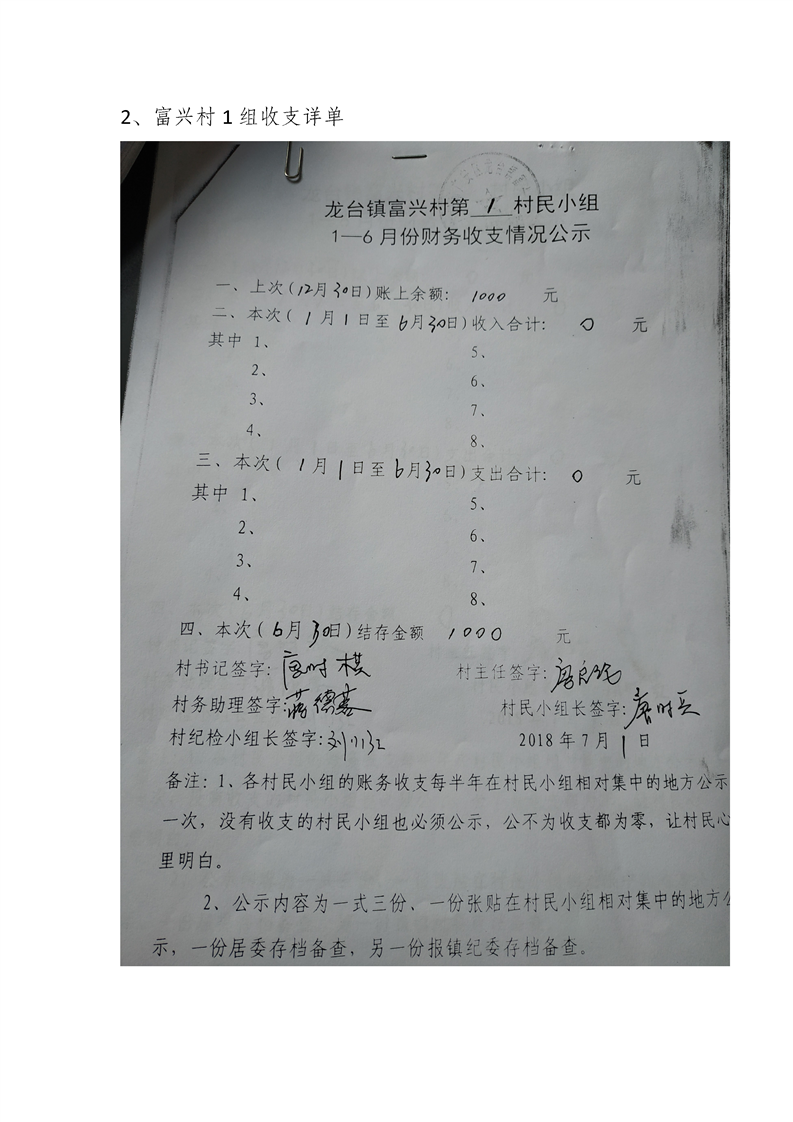 2、富兴村 1 组收支详单
龙台镇富兴村第 1 村民小组
1—6 月份财务收支情况公示
一、上次(12月30日)账上余额: 1000 元
二、本次( 1月1日至6月30日)收入合计: 0 元
其中 1、 5、
2、 6、
3、 7、
4、 8、
三、本次( 1月1日至6月30日)支出合计: 0 元
其中 1、 5、
2、 6、
3、 7、
4、 8、
四、本次(6月30日)结存金额 1000 元
村书记签字: 村主任签字:
村务助理签字:蒋德基 村民小组长签字:
村纪检小组长签字: 2018 年 7 月 1 日
备注: 1、各村民小组的账务收支每半年在村民小组相对集中的地方公示
一次，没有收支的村民小组也必须公示，公不为收支都为零，让村民心
里明白。
2、公示内容为一式三份、一份张贴在村民小组相对集中的地方公
示，一份居委存档备查，另一份报镇纪委存档备查。